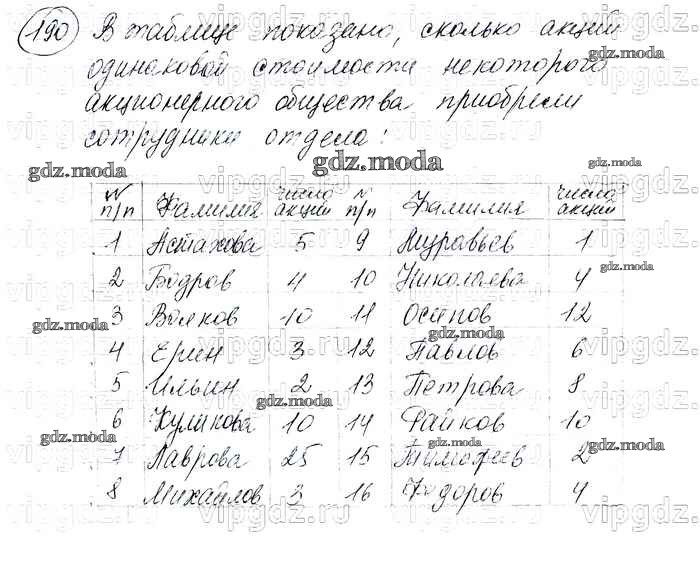 190 В таблице показано, сколько акций
одинаковой стоимости некоторого
акционерного общества приобрели
сотрудники отдела:
gdz.moda
№ п/п Фамилия Число акций № п/п Фамилия Число акций
1 Астахова 5 9 Муравьев 1
2 Бодров 4 10 Николаева 4
3 Волков 10 11 Осипов 12
4 Ерин 3 12 Павлов 6
5 Ильин 2 13 Петрова 8
6 Куликова 10 14 Райков 10
7 Лаврова 25 15 Тимофеев 2
8 Михайлов 3 16 Федоров 4
vipgdz.ru